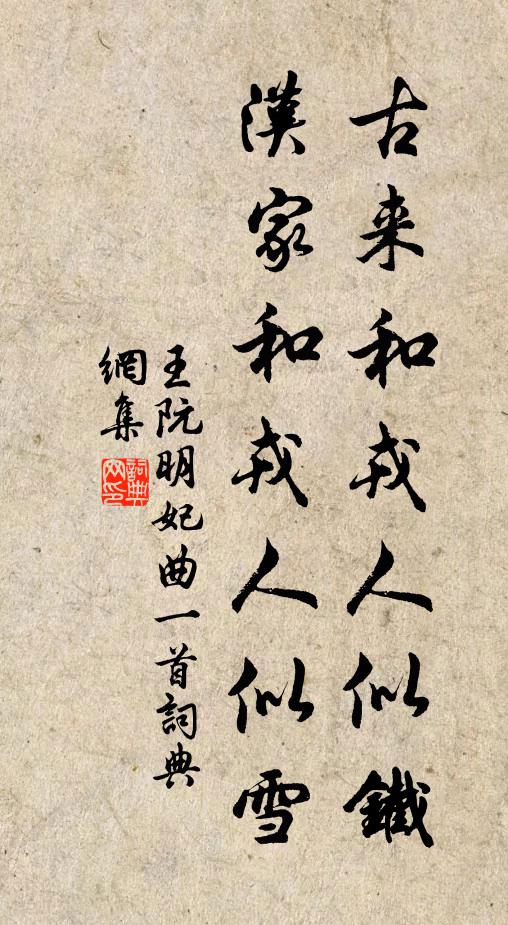 古来和戎人似鐵
漢家和戎人似雪
王阮明妃曲一首詞典
網集
詞典
网印